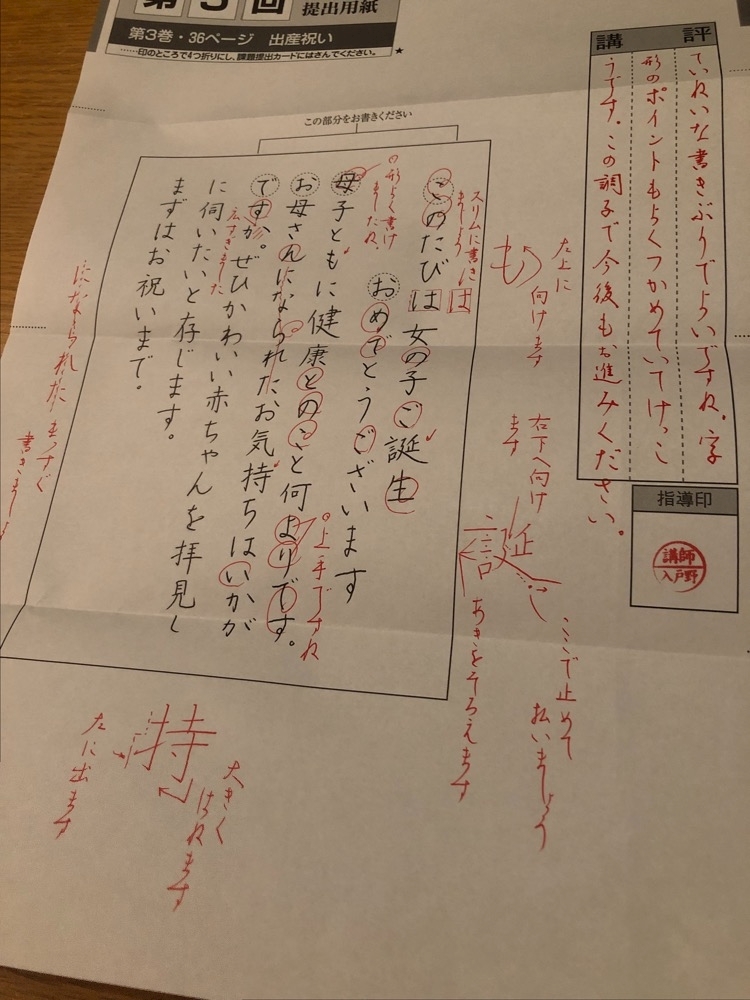 第3回
提出用紙
第3巻・36ページ 出産祝い
……印のところで4つ折りにし、課題提出カードにはさんでください。
★
講評
ていねいな書きぶりでよいですね。字
形のポイントもよくつかめていてけっこ
うです。この調子で今後もお進みください。
指導印
講師
入戸野
この部分をお書きください
このたびは女の子ご誕生
おめでとうございます
母子ともに健康とのこと何よりです。
お母さんになられたお気持ちはいかが
ですか。ぜひかわいい赤ちゃんを拝見し
に伺いたいと存じます。
まずはお祝いまで。
スリムに書き
ましょう
は
形よく書け
ましたね。
広すぎました
上手ですね
も
左上に
向けます
右下へ向け
ます
誕
ここで止めて
払いましょう
あきをそろえます
になられた
まっすぐ
書きましょう
持
大きく
はねます
左に出ます